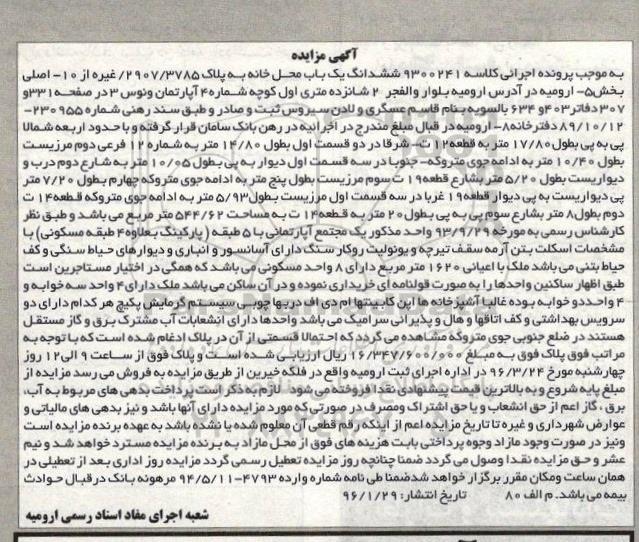 آگهی مزایده
به موجب پرونده اجرائی کلاسه ۹۳۰۰۲۴۱ ششدانگ یک باب محل خانه به پلاک ۲۹۰۷/۳۷۸۵/ غیره از ۱۰- اصلی
بخش۵- ارومیه در آدرس ارومیه بلوار والفجر ۲ شانزده متری اول کوچه شماره۴ آپارتمان ونوس ۳ در صفحه۳۳۱و
۳۰۷دفاتر۴۰۳و ۶۳۴ بالسویه بنام قاسم عسگری و لادن سیروس ثبت و صادر و طبق سند رهنی شماره ۲۳۰۹۵۵-
۸۹/۱۰/۱۲ دفترخانه۸- ارومیه در قبال مبلغ مندرج در اجرائیه در رهن بانک سامان قرار گرفته و با حدود اربعه شمالا
پی به پی بطول ۱۷/۸۰ متر به قطعه۱۲ ت- شرقا در دو قسمت اول بطول ۱۴/۸۰ متر به شماره ۱۲ فرعی دوم مرزیست
بطول ۱۰/۴۰ متر به ادامه جوی متروکه- جنوبا در سه قسمت اول دیوار به پی بطول ۱۰/۰۵ متر به شارع دوم درب و
دیواریست بطول ۵/۲۰ متر بشارع قطعه۱۹ ت سوم مرزیست بطول پنج متر به ادامه جوی متروکه چهارم بطول ۷/۲۰ متر
پی دیواریست به پی دیوار قطعه۱۹ غربا در سه قسمت اول مرزیست بطول۵/۹۳ متر به ادامه جوی متروکه قطعه۱۴ ت
دوم بطول۸ متر بشارع سوم پی به پی بطول ۲۰ متر به قطعه۱۴ ت به مساحت ۵۴۴/۶۲ متر مربع می باشد و طبق نظر
کارشناس رسمی به مورخه ۹۳/۹/۲۹ واحد مذکور یک مجتمع آپارتمانی با ۵ طبقه ( پارکینگ بعلاوه۴ طبقه مسکونی) با
مشخصات اسکلت بتن آرمه سقف تیرچه و یونولیت روکار سنگ دارای آسانسور و انباری و دیوارهای حیاط سنگی و کف
حیاط بتنی می باشد ملک با اعیانی ۱۶۲۰ متر مربع دارای ۸ واحد مسکونی می باشد که همگی در اختیار مستاجرین است
طبق اظهار ساکنین واحدها را به صورت قولنامه ای خریداری نموده و در آن ساکن می باشد ملک دارای ۴ واحد سه خوابه و
۴ واحد دو خوابه بوده غالبا آشپزخانه ها اپن کابینتها ام دی اف دربها چوبی سیستم گرمایش پکیج هر کدام دارای دو
سرویس بهداشتی و کف اتاقها و هال و پذیرائی سرامیک می باشد واحدها دارای انشعابات آب مشترک برق و گاز مستقل
هستند در ضلع جنوبی جوی متروکه مشاهده می گردد که احتمالا قسمتی از آن در پلاک ادغام شده است که با توجه به
مراتب فوق پلاک فوق به مبلغ ۱۶/۳۴۷/۶۰۰/۰۰۰ ریال ارزیابی شده است و پلاک فوق از ساعت ۹ الی ۱۲ روز
چهارشنبه مورخ ۹۶/۳/۲۴ در اداره اجرای ثبت ارومیه واقع در فلکه خیرین از طریق مزایده به فروش می رسد مزایده از
مبلغ پایه شروع و به بالاترین قیمت پیشنهادی نقدا فروخته می شود لازم به ذکر است پرداخت بدهی های مربوط به آب،
برق ، گاز اعم از حق انشعاب و یا حق اشتراک ومصرف در صورتی که مورد مزایده دارای آنها باشد و نیز بدهی های مالیاتی و
عوارض شهرداری و غیره تا تاریخ مزایده اعم از اینکه رقم قطعی آن معلوم شده یا نشده باشد به عهده برنده مزایده است
ونیز در صورت وجود مازاد وجوه پرداختی بابت هزینه های فوق از محل مازاد به برنده مزایده مسترد خواهد شد و نیم
عشر و حق مزایده نقدا وصول می گردد ضمنا چنانچه روز مزایده تعطیل رسمی گردد مزایده روز اداری بعد از تعطیلی در
همان ساعت ومکان مقرر برگزار خواهد شد ضمنا طی نامه شماره وارده ۴۷۹۳-۹۴/۵/۱۱ مرهونه بانک در قبال حوادث
بیمه می باشد. م الف ۸۰ تاریخ انتشار: ۹۶/۱/۲۹
شعبه اجرای مفاد اسناد رسمی ارومیه